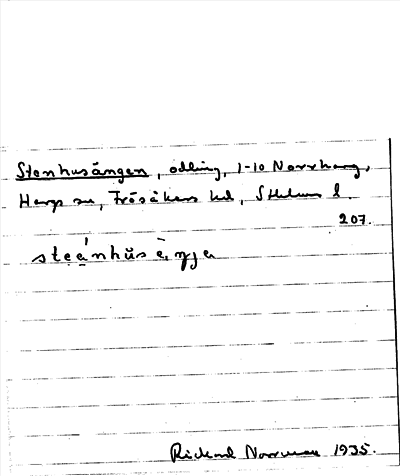 Stenhusängen, odling, 1-10 Norrharg,
Hargs sn, Frösåkers hd, Sthlms l.
207.
ste̤ạ́nhŭsè̤ŋja
Rickard Norrman 1935.